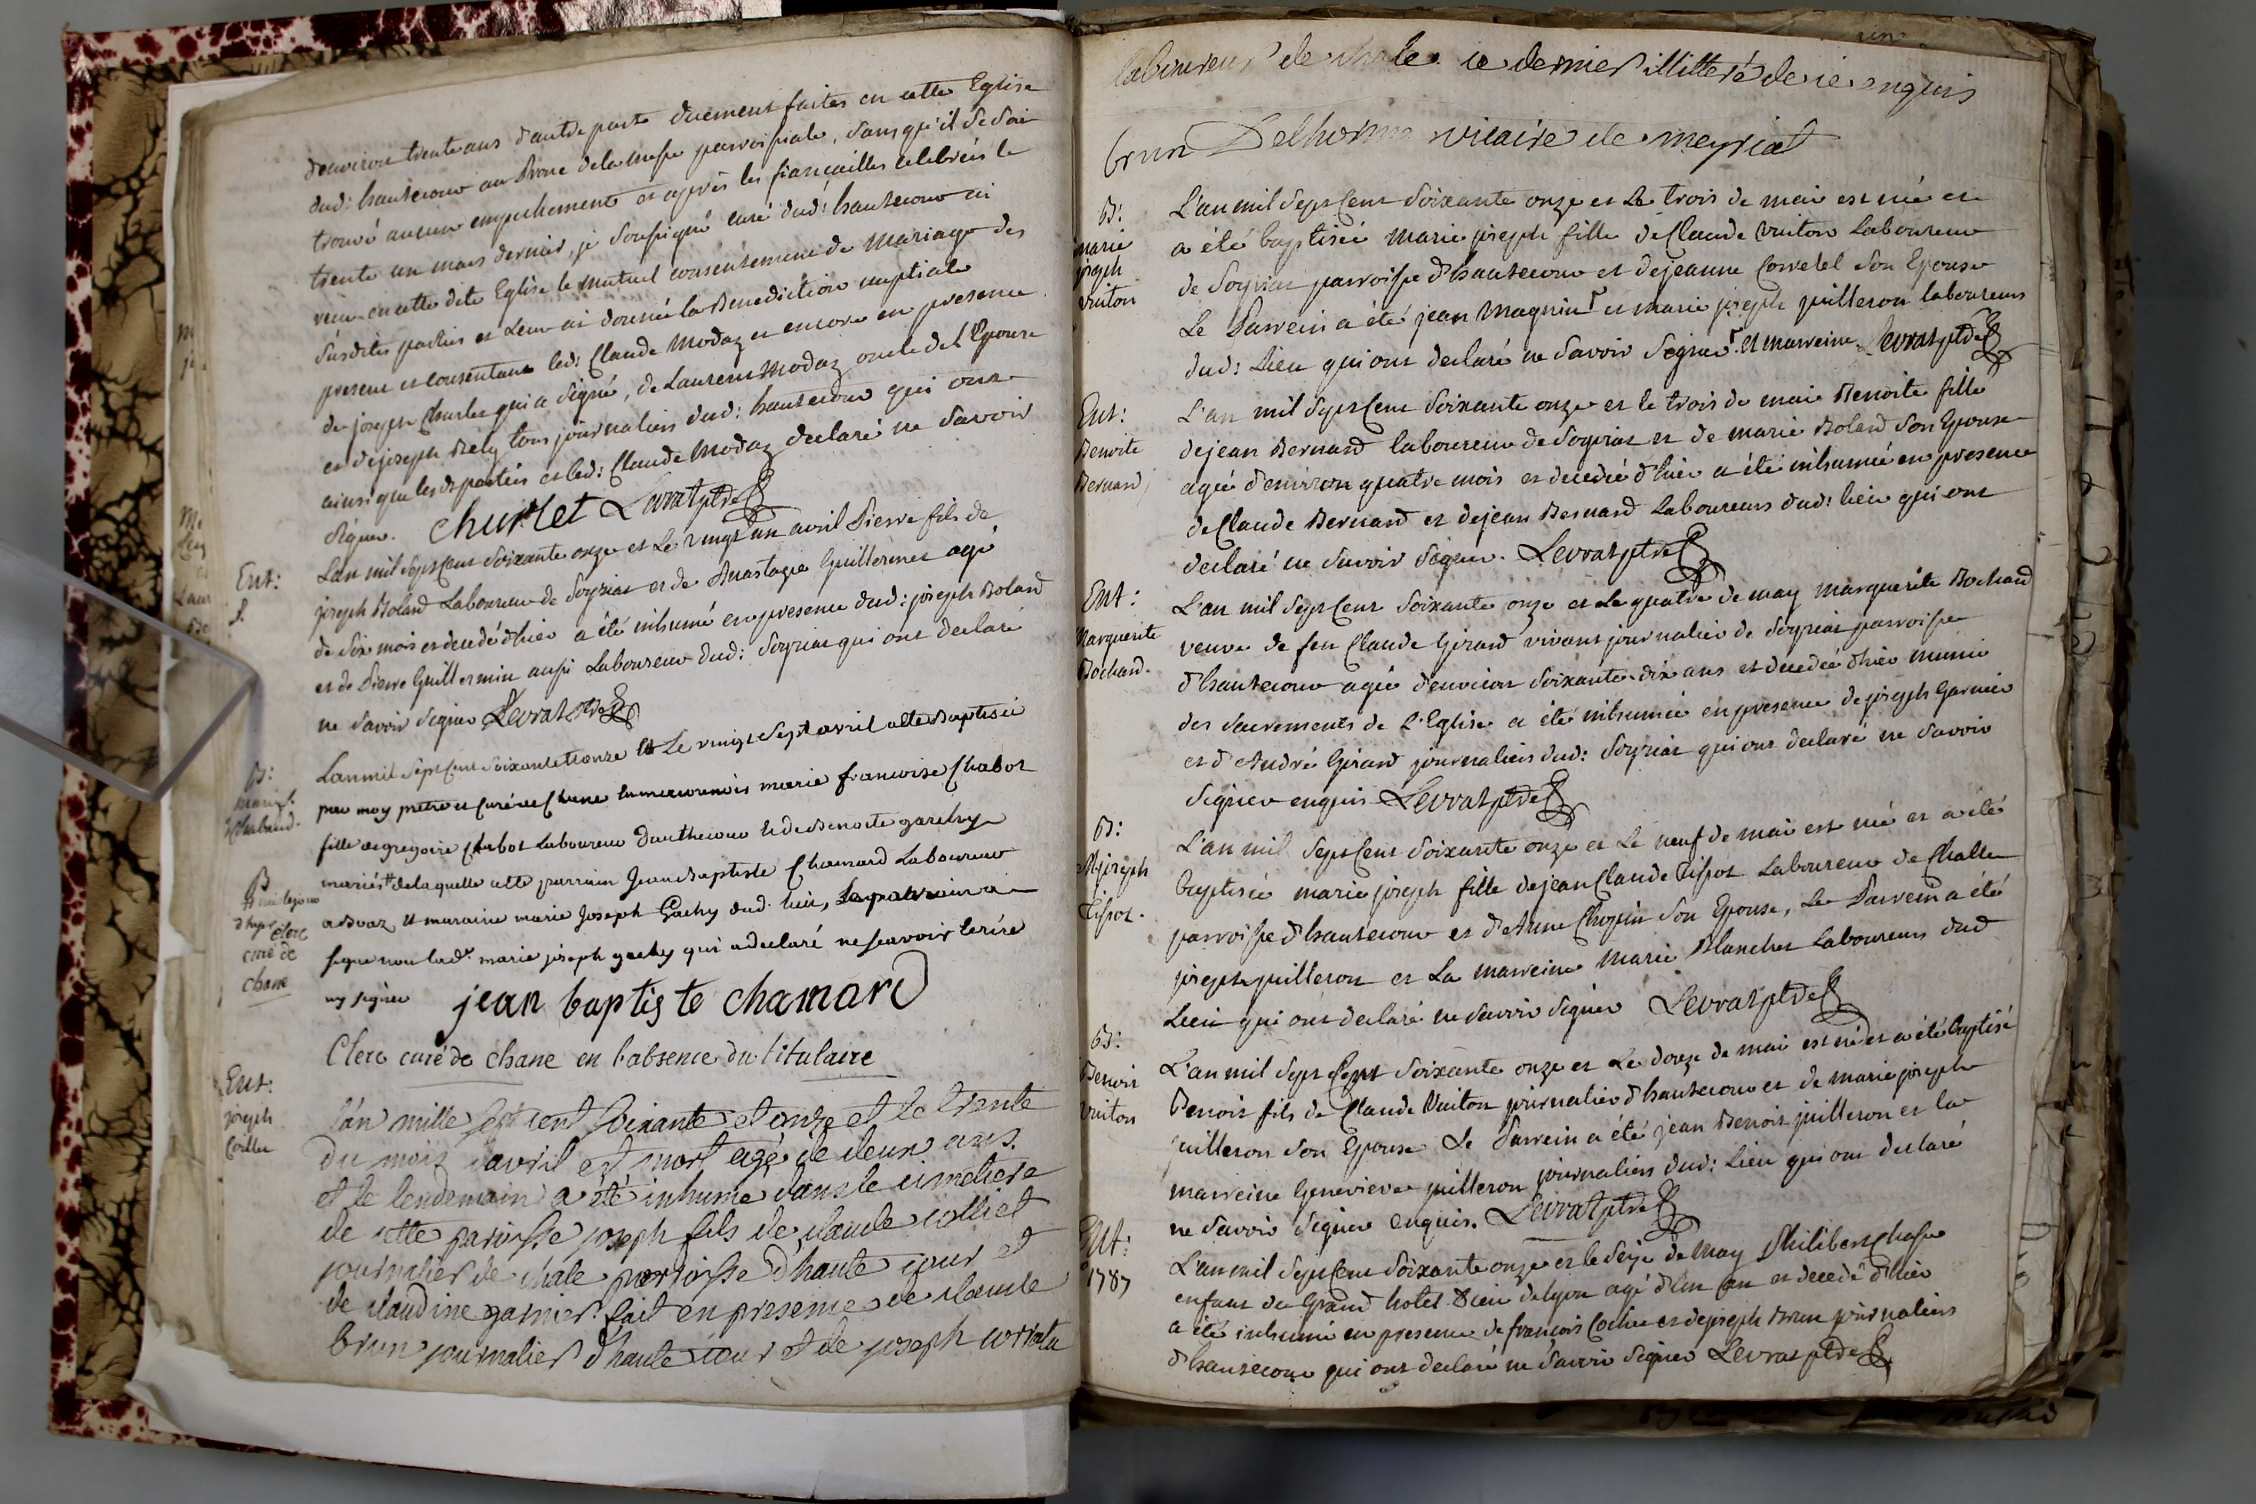 d'environ trente ans d'autre parte duement faites en cette Eglise
dud: hautecour au Prone de la messe parroissiale, sans qu'il se soit
trouvé aucun empechement et après les fiancailles celebrées le
trente un mars dernier, je soussigné curé dud: hautecour ai
recu en cette dite Eglise le mutuel consentement de Mariage des
susdites parties et leur ai donné la Benediction nuptiale
present et consentant led: Claude Modaz et encore en presence
de joseph Churlet qui a signé, de Laurent Modaz oncle de l'Epouse
et de joseph Rely tous journaliers dud: hautecour qui ont
ainsi que les parties et led: Claude Modaz declaré ne savoir
signer. Churlet Levrat ptre
Ent:
L'an mil sept cent soixante onze et le vingt un avril Pierre fils de
joseph Boland Laboureur de Soyriat et de Anastazie Guillermet agé
de six mois et decedé d'hier a été inhumé en presence dud: joseph Boland
et de Pierre Guillermin aussi Laboureur dud: Soyriat qui ont declaré
ne savoir signer Levrat ptre
B:
marie f.
Chabaud.
L'an mil sept Cent soixante et onze et Le vingt sept avril a été Baptisée
par moy pretre et Curé de Chane marie francoise Chabot
fille de gregoire Chabot Laboureur Dauthecour et de Benoite gachy
mariés de laquelle a été parrain Jean Baptiste Chamard Laboureur
a Bvaz et maraine marie Joseph Gachy dud. lieu, Le parrain a
signe non lad. marie joseph gachy qui a declaré ne scavoir lecrire
ny signer jean baptiste chamard
Clerc
curé de
Chane
Clerc curé de Chane en l'absence du titulaire
Ent:
joseph
Collier
l'an mille sept cent soixante et onze et le trente
du mois d'avril est mort agé de deux ans.
et le lendemain a été inhumé dans le cimetiere
de cette paroisse joseph fils de claude colliet
journalier de chale parroisse d'haute cour et
de claudine garnier. fait en presence de claude
brun journalier d'haute cour et de joseph corretel
laboureur de chale ce dernier illitteré de ce enquis
brun Delhorme vicaire de meyriat
B:
marie
joseph
Vuiton
L'an mil sept Cent soixante onze et Le trois de mai est née et
a été baptisée marie joseph fille de Claude Vuiton Laboureur
de Soyriat parroisse d'hautecour et de jeanne Corretel son Epouse
Le Parrein a été jean Magnin et marie joseph juilleron laboureurs
dud: Lieu qui ont declaré ne savoir signer. et marreine. Levrat ptre
Ent:
Benoite
Bernard
L'an mil sept Cent soixante onze et le trois de mai Benoite fille
de jean Bernard laboureur de Soyriat et de marie Boland son Epouse
agée d'environ quatre mois et decedée d'hier a été inhumée en presence
de Claude Bernard et de jean Bernard Laboureurs dud: lieu qui ont
declaré ne savoir signer. Levrat ptre
Ent:
Marguerite
Bochard.
L'an mil sept Cent soixante onze et Le quatre de may marguerite Bochard
veuve de feu Claude Girard vivant journalier de Soyriat parroisse
d'hautecour agée d'environ soixante-dix ans et decedée d'hier munie
des sacrements de L'Eglise a été inhumée en presence de joseph Garnier
et d'André Girard journaliers dud: Soyriat qui ont declaré ne savoir
signer enquis Levrat ptre
B:
M joseph
Tissot.
L'an mil sept Cent soixante onze et Le neuf de mai est née et a été
Baptisée marie joseph fille de jean Claude Tissot Laboureur de Challe
parroisse d'hautecour et d'Anne Chopin son Epouse, Le Parrein a été
joseph juilleron et La marreine Marie Blanchet Laboureurs dud
Lieu qui ont declaré ne savoir signer Levrat ptre
B:
Benoit
Vuiton
L'an mil sept Cent soixante onze et Le douze de mai est né et a été Baptisé
Benoit fils de Claude Vuiton journalier d'hautecour et de marie joseph
juilleron son Epouse Le Parrein a été jean Benoit juilleron et la
marreine Genevieve juilleron journaliers dud: Lieu qui ont declaré
ne savoir signer enquis. Levrat ptre
Ent:
1787
L'an mil sept Cent soixante onze et le seize de may Philibert Chasse
enfant du Grand hotel Dieu de Lyon agé d'un an et decedé d'hier
a été inhumé en presence de francois Cochet et de joseph Brun journaliers
d'hautecour qui ont declaré ne savoir signer Levrat ptre